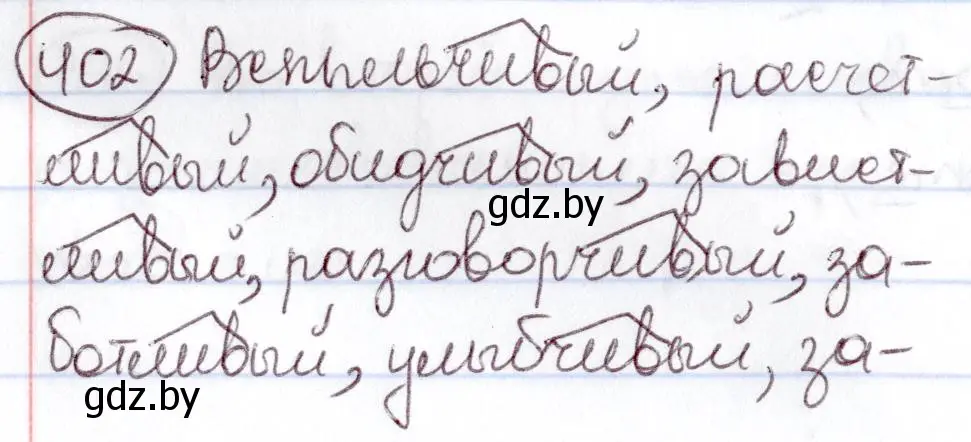 402 Вспыльчивый, расчет-
ливый, обидчивый, завист-
gdz.by
ливый, разговорчивый, за-
ботливый, улыбчивый, за-
gdz.by